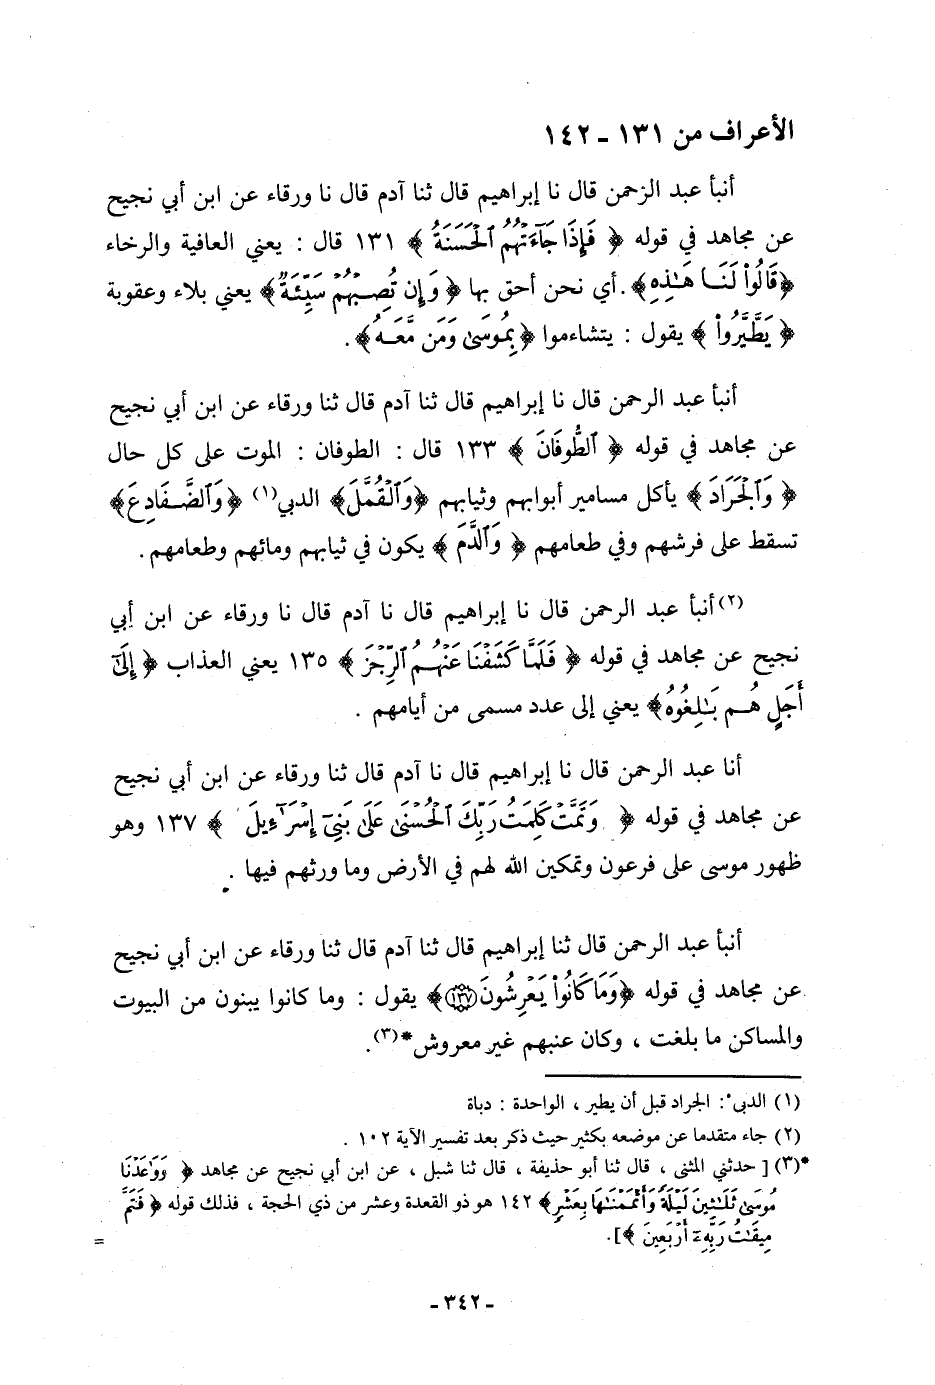 الأعراف من ١٣١ ـ ١٤٢
أنبأ عبد الرحمن قال نا إبراهيم قال ثنا آدم قال نا ورقاء عن ابن أبي نجيح
عن مجاهد في قوله ﴿ فَإِذَا جَآءَتْهُمُ ٱلْحَسَنَةُ ﴾ ١٣١ قال : يعني العافية والرخاء
﴿قَالُوا۟ لَنَا هَـٰذِهِۦ﴾. أي نحن أحق بها ﴿وَإِن تُصِبْهُمْ سَيِّئَةٌ﴾ يعني بلاء وعقوبة
﴿ يَطَّيَّرُوا۟ ﴾ يقول : يتشاءموا ﴿بِمُوسَىٰ وَمَن مَّعَهُۥ﴾.
أنبأ عبد الرحمن قال نا إبراهيم قال ثنا آدم قال ثنا ورقاء عن ابن أبي نجيح
عن مجاهد في قوله ﴿ ٱلطُّوفَانَ ﴾ ١٣٣ قال : الطوفان : الموت على كل حال
﴿ وَٱلْجَرَادَ ﴾ يأكل مسامير أبوابهم وثيابهم ﴿وَٱلْقُمَّلَ﴾ الدبي(١) ﴿وَٱلضَّفَادِعَ﴾
تسقط على فرشهم وفي طعامهم ﴿ وَٱلدَّمَ ﴾ يكون في ثيابهم ومائهم وطعامهم .
(٢) أنبأ عبد الرحمن قال نا إبراهيم قال نا آدم قال نا ورقاء عن ابن أبي
نجيح عن مجاهد في قوله ﴿ فَلَمَّا كَشَفْنَا عَنْهُمُ ٱلرِّجْزَ ﴾ ١٣٥ يعني العذاب ﴿ إِلَىٰٓ
أَجَلٍ هُم بَـٰلِغُوهُ﴾ يعني إلى عدد مسمى من أيامهم .
أنا عبد الرحمن قال نا إبراهيم قال نا آدم قال ثنا ورقاء عن ابن أبي نجيح
عن مجاهد في قوله ﴿ وَتَمَّتْ كَلِمَتُ رَبِّكَ ٱلْحُسْنَىٰ عَلَىٰ بَنِىٓ إِسْرَٰٓءِيلَ ﴾ ١٣٧ وهو
ظهور موسى على فرعون وتمكين الله لهم في الأرض وما ورثهم فيها .
أنبأ عبد الرحمن قال ثنا إبراهيم قال ثنا آدم قال ثنا ورقاء عن ابن أبي نجيح
عن مجاهد في قوله ﴿وَمَا كَانُوا۟ يَعْرِشُونَ ١٣٧﴾ يقول : وما كانوا يبنون من البيوت
والمساكن ما بلغت ، وكان عنبهم غير معروش*(٣).
(١) الدبى : الجراد قبل أن يطير ، الواحدة : دباة
(٢) جاء متقدما عن موضعه بكثير حيث ذكر بعد تفسير الآية ١٠٢ .
*(٣) [ حدثني المثنى ، قال ثنا أبو حذيفة ، قال ثنا شبل ، عن ابن أبي نجيح عن مجاهد ﴿ وَوَٰعَدْنَا
مُوسَىٰ ثَلَـٰثِينَ لَيْلَةً وَأَتْمَمْنَـٰهَا بِعَشْرٍ﴾ ١٤٢ هو ذو القعدة وعشر من ذي الحجة ، فذلك قوله ﴿ فَتَمَّ
مِيقَـٰتُ رَبِّهِۦٓ أَرْبَعِينَ ﴾].
=
ـ ٣٤٢ ـ